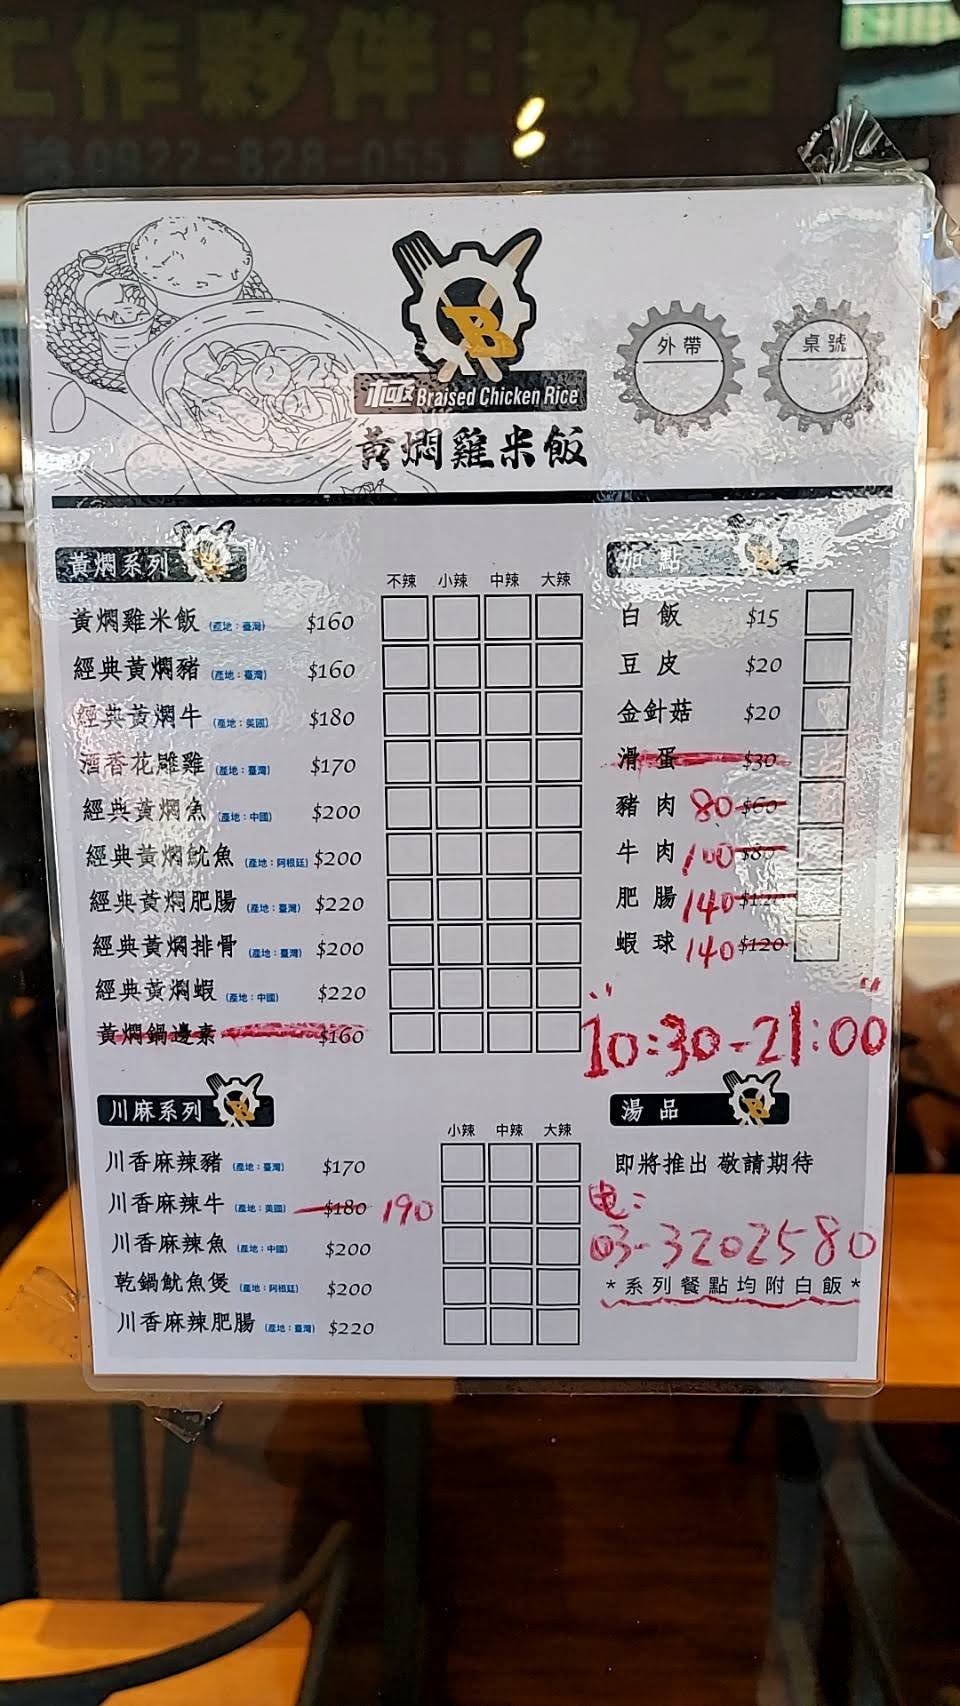 工作夥伴:數名
0922-828-055
外帶
桌號
B
極 Braised Chicken Rice
黃燜雞米飯
黃燜系列
不辣 小辣 中辣 大辣
黃燜雞米飯 (產地:臺灣) $160
經典黃燜豬 (產地:臺灣) $160
經典黃燜牛 (產地:美國) $180
酒香花雕雞 (產地:臺灣) $170
經典黃燜魚 (產地:中國) $200
經典黃燜魷魚 (產地:阿根廷) $200
經典黃燜肥腸 (產地:臺灣) $220
經典黃燜排骨 (產地:臺灣) $200
經典黃燜蝦 (產地:中國) $220
黃燜鍋邊素 $160
加點
白飯 $15
豆皮 $20
金針菇 $20
滑蛋 $30
豬肉 80 $60
牛肉 100 $80
肥腸 140 $120
蝦球 140 $120
10:30-21:00
川麻系列
小辣 中辣 大辣
川香麻辣豬 (產地:臺灣) $170
川香麻辣牛 (產地:美國) $180 190
川香麻辣魚 (產地:中國) $200
乾鍋魷魚煲 (產地:阿根廷) $200
川香麻辣肥腸 (產地:臺灣) $220
湯品
即將推出 敬請期待
电:
03-3202580
*系列餐點均附白飯*